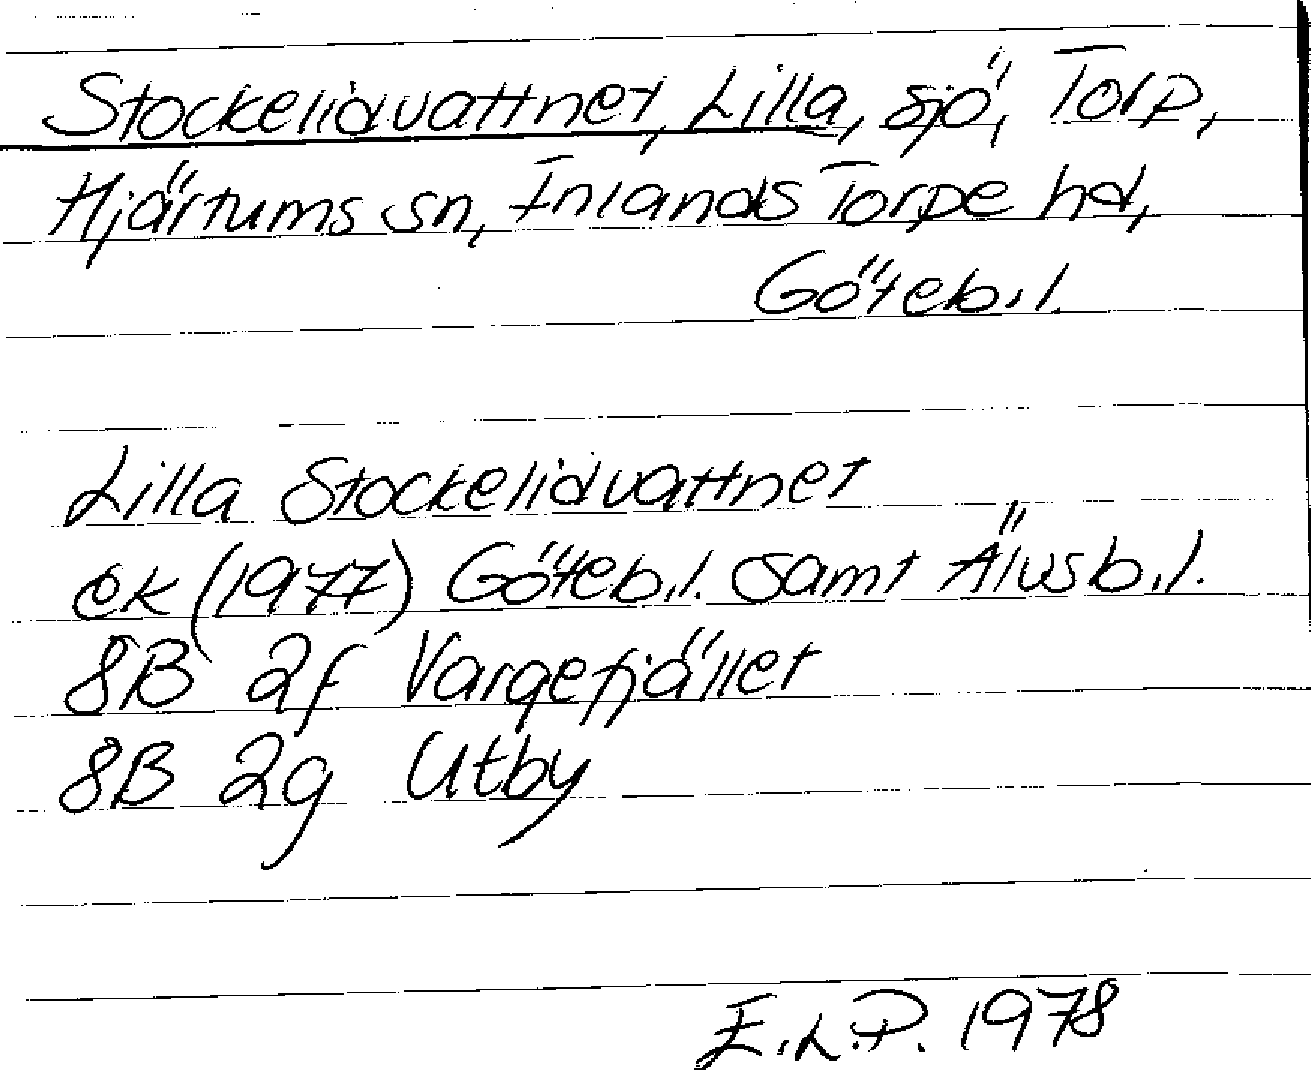 Stockelidvattnet, Lilla, sjö, Torp,
Hjärtums sn, Inlands Torpe hd,
Göteb.l.
Lilla Stockelidvattnet
ek (1977) Göteb.l. samt Älvsb.l.
8B 2f Vargefjället
8B 2g Utby
E.L.P. 1978